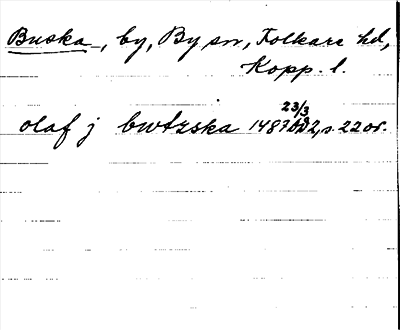 Buska, by, By sn, Folkare hd,
Kopp. l.
olaf j bwtzska 1487 23/3 AD2, s. 22 or.